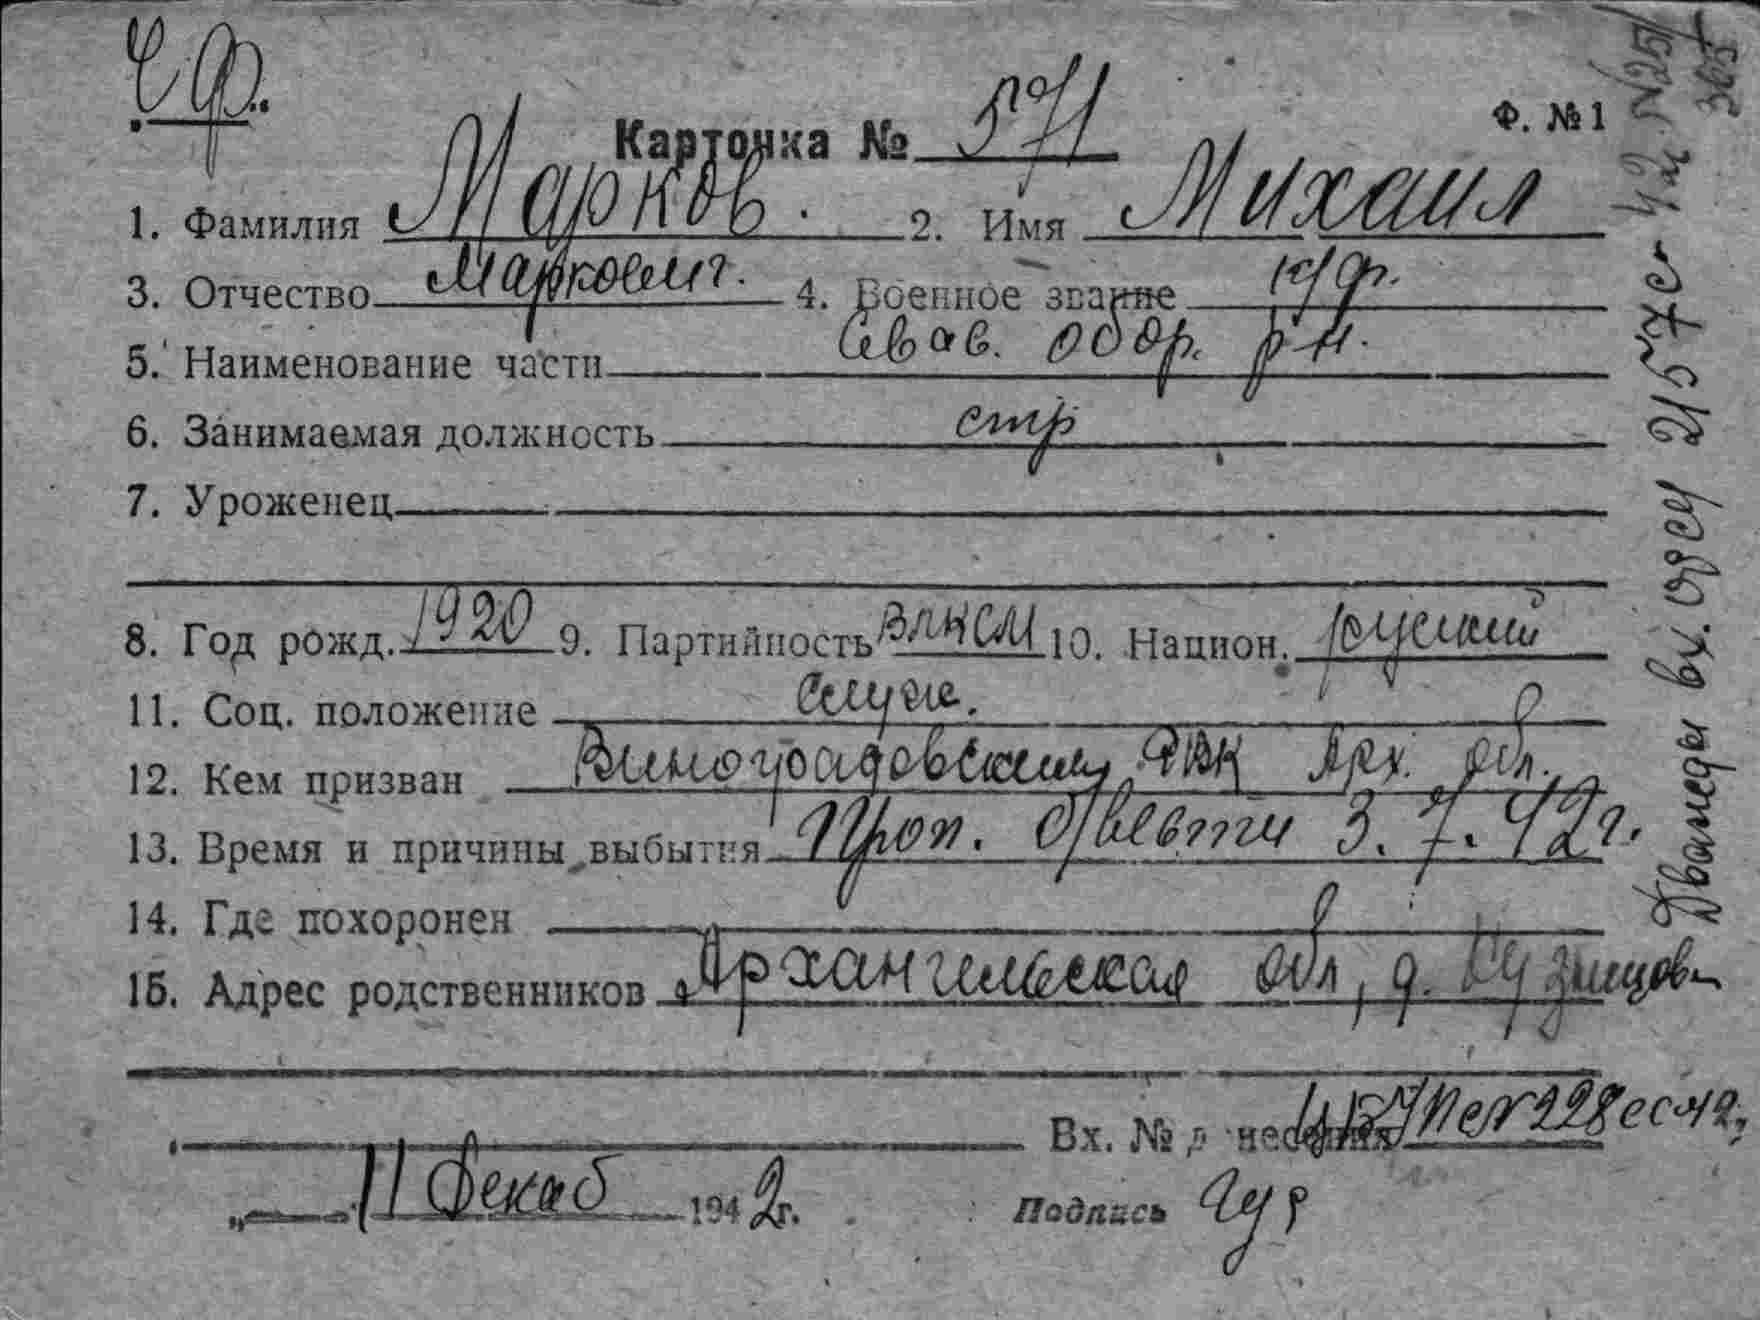 ЧФ.
Карточка № 571
Ф. № 1
1. Фамилия Марков. 2. Имя Михаил
3. Отчество Маркович. 4. Военное звание к/ф.
5. Наименование части Севас. обор. р-н.
6. Занимаемая должность стр
7. Уроженец
8. Год рожд. 1920 9. Партийность ВЛКСМ 10. Национ. русский
11. Соц. положение служ.
12. Кем призван Виноградовским РВК Арх. обл.
13. Время и причины выбытия Проп. б/вести 3.7.42г.
14. Где похоронен
15. Адрес родственников Архангельская обл, д.
Вх. № донесения 228
„ 11 декаб 1942г. Подпись
вх.